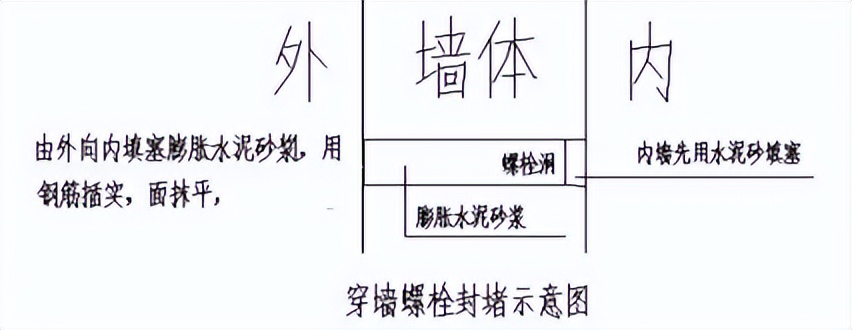 外 墙体 内
由外向内填塞膨胀水泥砂浆，用
钢筋插实，面抹平，
螺栓洞
内墙先用水泥砂填塞
膨胀水泥砂浆
穿墙螺栓封堵示意图